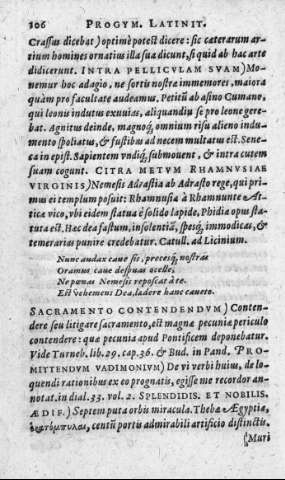 106 PROGYM. LATINIT.
Crassus dicebat) optimè potest dicere: sic caterarum ar-
tium homines ornatius illa sua dicunt, si quid ab hac arte
didicerunt. INTRA PELLICVLAM SVAM) Mo-
nemur hoc adagio, ne sortis nostra immemores, maiora
quàm pro facultate audeamus. Petitũ ab asino Cumano,
qui leonis indutus exuuias, aliquandiu se pro leone gere-
bat. Agnitus deinde, magnoq́, omnium risu alieno indu-
mento spoliatus, & fustibus ad necem multatus est. Sene-
ca in epist. Sapientem vndiq́, submouent, & intra cutem
suam cogunt. CITRA METVM RHAMNVSIAE
VIRGINIS) Nemesis Adrastia ab Adrasto rege, qui pri-
mus ei templum posuit: Rhamnusia à Rhamnunte At-
tica vico, vbi eidem statua è solido lapide, Phidia opus sta-
tuta est. Hac dea fastum, insolentiã, spesq́, immodicas, &
temerarias punire credebatur. Catull. ad Licinium.
Nunc audax caue sis, precesq́, nostras
Oramus caue despuas ocelle,
Ne pœnas Nemesis reposcat à te.
Est vehemens Dea, ladere hanc caueto.
SACRAMENTO CONTENDENDVM) Conten-
dere seu litigare sacramento, est magna pecunia periculo
contendere: qua pecunia apud Pontificem deponebatur.
Vide Turneb. lib. 29. cap. 36. & Bud. in Pand. PRO-
MITTENDVM VADIMONIVM) De vi verbi huius, de lo-
quendi rationibus ex eo prognatis, egisse me recordor an-
notat. in dial. 33. vol. 2. SPLENDIDIS. ET NOBILIS.
ÆDIF.) Septem puta orbis miracula. Theba Ægyptia,
centũ portis admirabili artificio distinctis.
(Muri